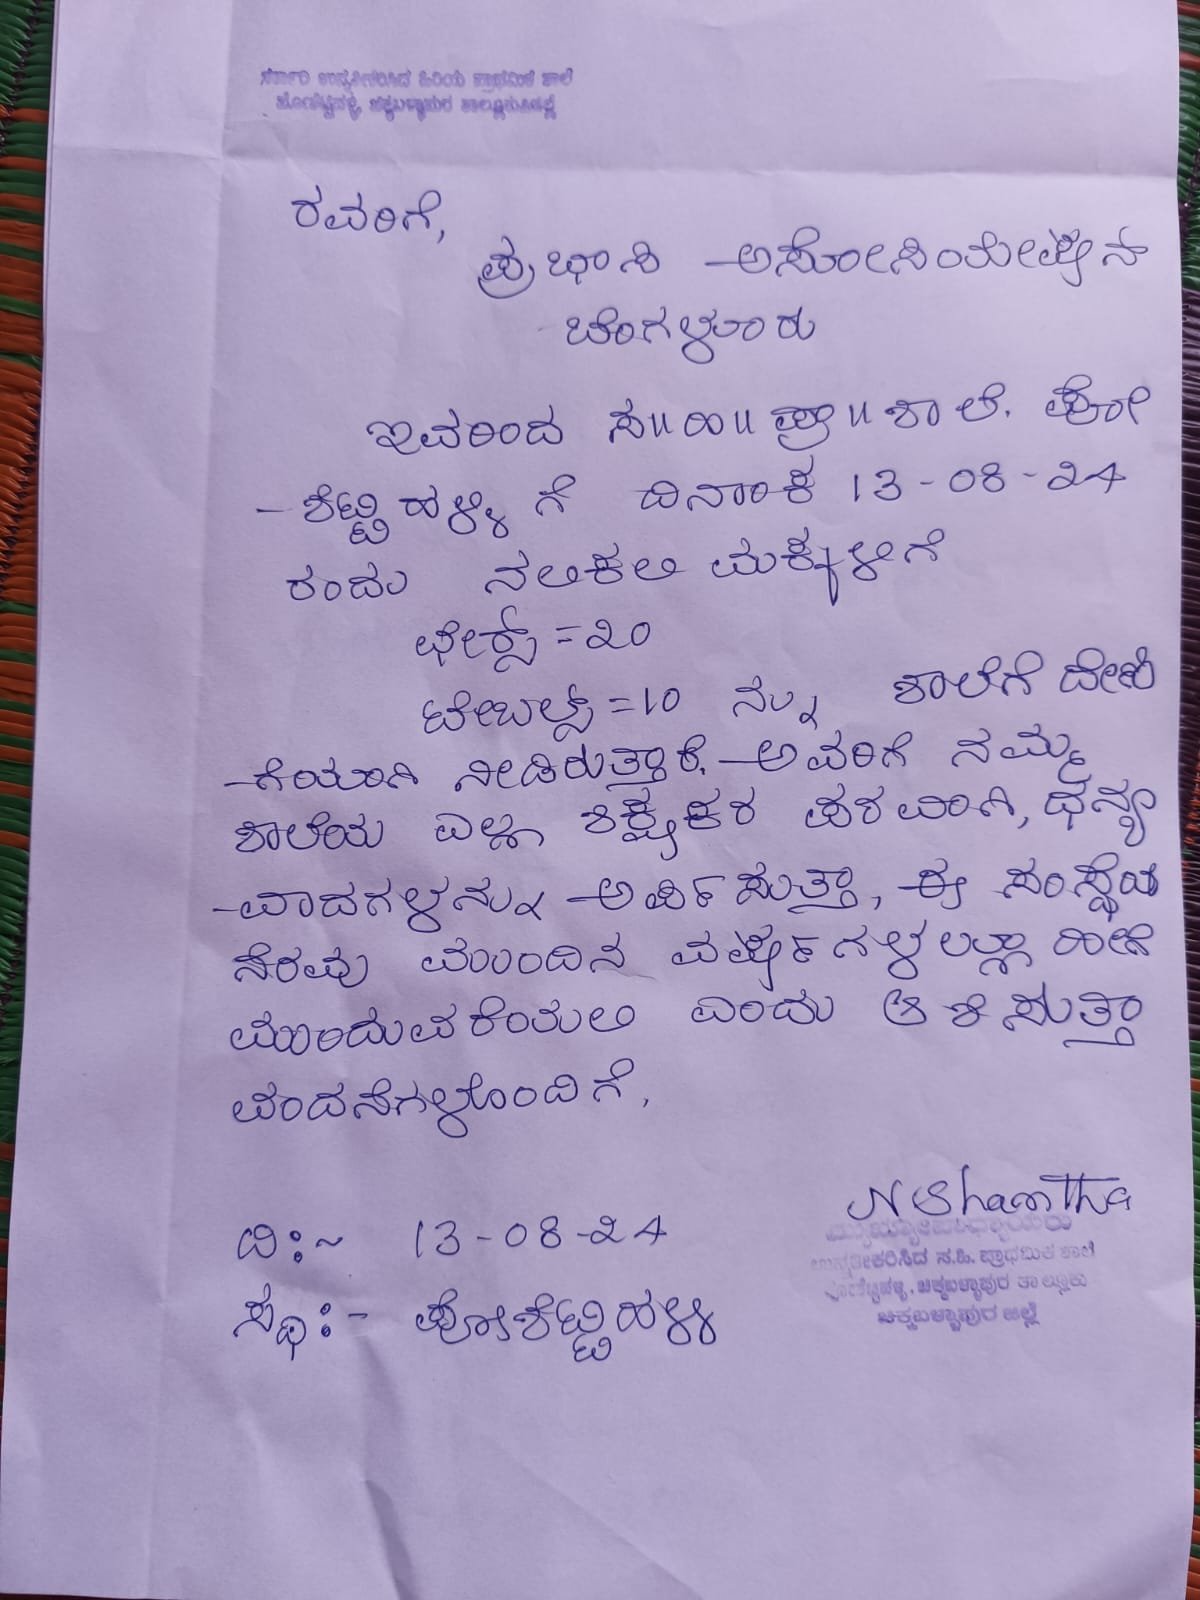 ಸರ್ಕಾರಿ ಉನ್ನತೀಕರಿಸಿದ ಹಿರಿಯ ಪ್ರಾಥಮಿಕ ಶಾಲೆ
ಪೋಶೆಟ್ಟಿಹಳ್ಳಿ, ಚಿಕ್ಕಬಳ್ಳಾಪುರ ತಾಲ್ಲೂಕು/ಜಿಲ್ಲೆ
ರವರಿಗೆ,
ಪ್ರಭಾಸಿ ಅಸೋಸಿಯೇಷನ್
ಬೆಂಗಳೂರು
ಇವರಿಂದ ಸ॥ಹಿ॥ಪ್ರಾ॥ಶಾಲೆ. ಪೋ
-ಶೆಟ್ಟಿಹಳ್ಳಿ ಗೆ ದಿನಾಂಕ 13-08-24
ರಂದು ನಲಿಕಲಿ ಮಕ್ಕಳಿಗೆ
ಛೇರ್‍ಸ್ = 20
ಟೇಬಲ್ಸ್ = 10 ನ್ನು ಶಾಲೆಗೆ ದೇಣಿ
-ಗೆಯಾಗಿ ನೀಡಿರುತ್ತಾರೆ. ಅವರಿಗೆ ನಮ್ಮ
ಶಾಲೆಯ ಎಲ್ಲಾ ಶಿಕ್ಷಕರ ಪರವಾಗಿ, ಧನ್ಯ
-ವಾದಗಳನ್ನು ಅರ್ಪಿಸುತ್ತಾ, ಈ ಸಂಸ್ಥೆಯ
ನೆರವು ಮುಂದಿನ ವರ್ಷಗಳಲ್ಲೂ ಹೀಗೆ
ಮುಂದುವರೆಯಲಿ ಎಂದು ಆಶಿಸುತ್ತಾ
ವಂದನೆಗಳೊಂದಿಗೆ,
N Shantha
ಮುಖ್ಯೋಪಾಧ್ಯಾಯರು
ಉನ್ನತೀಕರಿಸಿದ ಸ.ಹಿ. ಪ್ರಾಥಮಿಕ ಶಾಲೆ
ಪೋಶೆಟ್ಟಿಹಳ್ಳಿ, ಚಿಕ್ಕಬಳ್ಳಾಪುರ ತಾಲ್ಲೂಕು
ಚಿಕ್ಕಬಳ್ಳಾಪುರ ಜಿಲ್ಲೆ
ದಿ:- 13-08-24
ಸ್ಥಳ:- ಪೋಶೆಟ್ಟಿಹಳ್ಳಿ